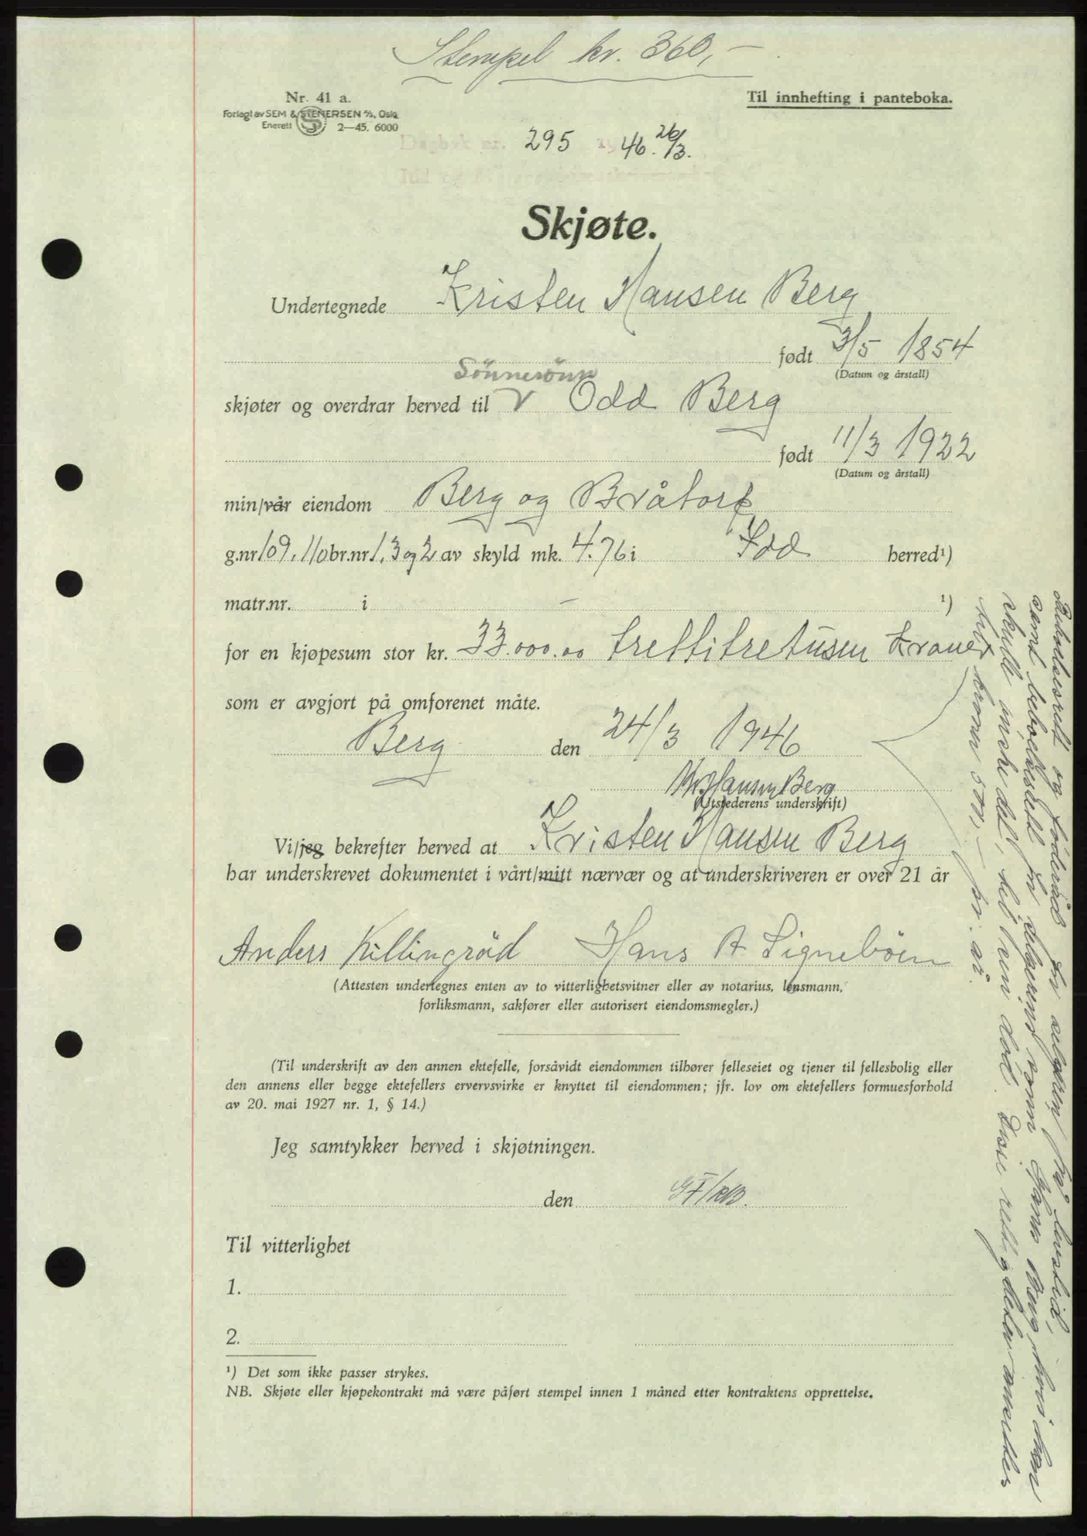 Stempel kr. 360,-
Nr. 41 a.
Forlagt av SEM & STENERSEN A/S, Oslo
Enerett 2—45. 6000
Til innhefting i panteboka.
Dagbok nr. 295 19 46. 26/3.
Skjøte.
Undertegnede Kristen Hansen Berg
født 3/5 1854
(Datum og årstall)
Sønnesønn
skjøter og overdrar herved til V Odd Berg
født 11/3 1922
(Datum og årstall)
min/vår eiendom Berg og Bråtorp
g.nr. 109, 110 br.nr. 1, 3 og 2 av skyld mk. 4.76 i Idd herred¹)
matr.nr. i — ¹)
for en kjøpesum stor kr. 33.000.00 trettitretusen kroner
som er avgjort på omforenet måte.
Berg den 24/3 1946
Kr. Hansen Berg
(Utstederens underskrift)
Vi/jeg bekrefter herved at Kristen Hansen Berg
har underskrevet dokumentet i vårt/mitt nærvær og at underskriveren er over 21 år
Anders Killingrød Hans A Lignebøen
(Attesten undertegnes enten av to vitterlighetsvitner eller av notarius, lensmann,
forliksmann, sakfører eller autorisert eiendomsmegler.)
(Til underskrift av den annen ektefelle, forsåvidt eiendommen tilhører felleseiet og tjener til fellesbolig eller
den annens eller begge ektefellers ervervsvirke er knyttet til eiendommen; jfr. lov om ektefellers formuesforhold
av 20. mai 1927 nr. 1, § 14.)
Jeg samtykker herved i skjøtningen.
den
Til vitterlighet
1.
2.
¹) Det som ikke passer strykes.
NB. Skjøte eller kjøpekontrakt må være påført stempel innen 1 måned etter kontraktens opprettelse.
og föderåd for selgeren på levetid,
samt for selgerens sønn Hans Berg, hvis han
skulle ønske det, til hun död. Disse rettigheter ansettes
til kroner 500,- pr. år.